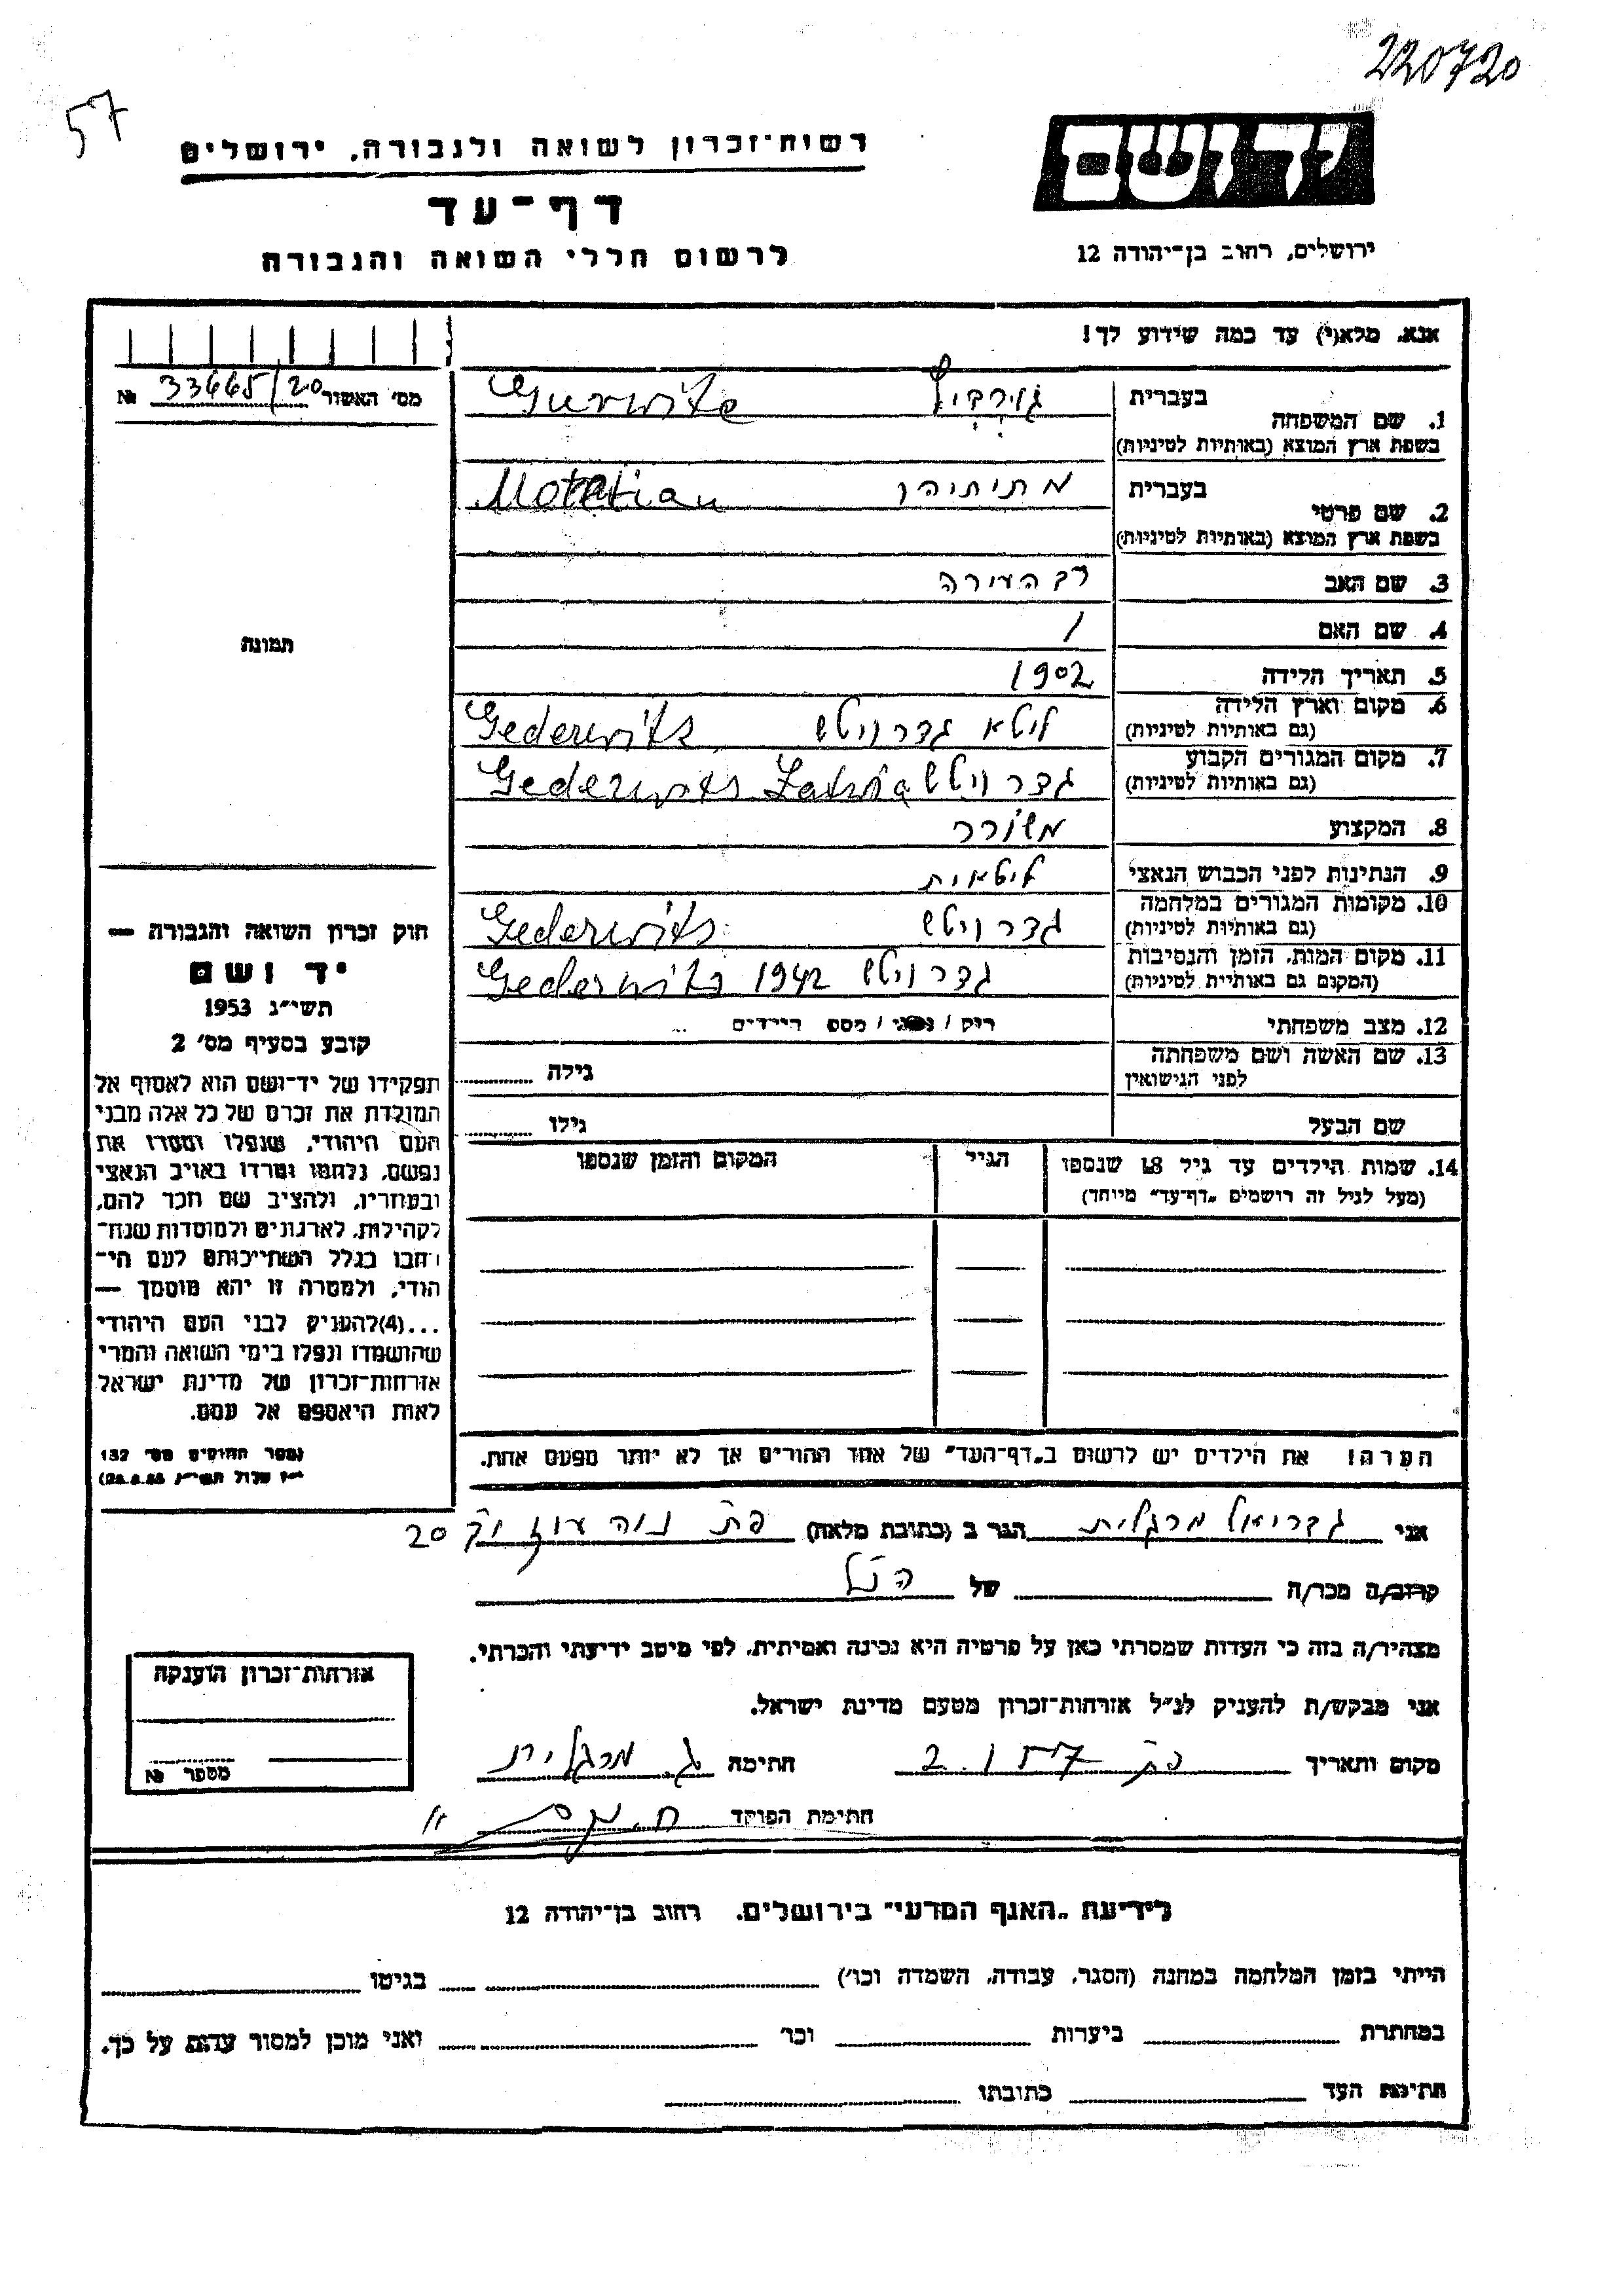 220720
57
רשות־זכרון לשואה ולגבורה, ירושלים
יד ושם
דף־עד
ירושלים, רחוב בן־יהודה 12
לרשום חללי השואה והגבורה
אנא, מלא(י) עד כמה שידוע לך!
מס׳ האשור 33665/20 №
1. שם המשפחה
בעברית גורביץ Gurwitz
בשפת ארץ המוצא (באותיות לטיניות)
2. שם פרטי
בעברית מתיתיהו
בשפת ארץ המוצא (באותיות לטיניות)
3. שם האב רב העירה
4. שם האם /
5. תאריך הלידה 1902
6. מקום וארץ הלידה ליטא גדרויטש Gederwits
(גם באותיות לטיניות)
7. מקום המגורים הקבוע גדרויטש Gederwits
(גם באותיות לטיניות)
8. המקצוע משורר
9. הנתינות לפני הכבוש הנאצי ליטאית
10. מקומות המגורים במלחמה גדרויטש Gederwits
(גם באותיות לטיניות)
11. מקום המות, הזמן והנסיבות גדרויטש 1942 Gederwits
(המקום גם באותיות לטיניות)
12. מצב משפחתי רוק / נשוי / מספר הילדים ...
13. שם האשה ושם משפחתה גילה
לפני הנישואין
שם הבעל גילו
14. שמות הילדים עד גיל 18 שנספו הגיל המקום והזמן שנספו
(מעל לגיל זה רושמים „דף־עד״ מיוחד)
הערה: את הילדים יש לרשום ב„דף־העד״ של אחד ההורים אך לא יותר מפעם אחת.
תמונה
חוק זכרון השואה והגבורה —
יד ושם
תשי״ג 1953
קובע בסעיף מס׳ 2
תפקידו של יד־ושם הוא לאסוף אל
המולדת את זכרם של כל אלה מבני
העם היהודי, שנפלו ומסרו את
נפשם, נלחמו ומרדו באויב הנאצי
ובעוזריו, ולהציב שם וזכר להם,
לקהילות, לארגונים ולמוסדות שנח־
רבו בגלל השתייכותם לעם הי־
הודי, ולמטרה זו יהא מוסמך —
...(4)להעניק לבני העם היהודי
שהושמדו ונפלו בימי השואה והמרי
אזרחות־זכרון של מדינת ישראל
לאות היאספם אל עמם.
(ספר החוקים מס׳ 132
אני גבריאל מרגלית הגר ב (כתובת מלאה) פת נוה עוז 20
קרוב/ה מכר/ה של הנ״ל
מצהיר/ה בזה כי העדות שמסרתי כאן על פרטיה היא נכונה ואמיתית, לפי מיטב ידיעתי והכרתי.
אני מבקש/ת להעניק לנ״ל אזרחות־זכרון מטעם מדינת ישראל.
מקום ותאריך פת חתימה ג. מרגלית
חתימת הפוקד
אזרחות־זכרון הוענקה
מספר №
לידיעת „האגף המדעי״ בירושלים, רחוב בן־יהודה 12
הייתי בזמן המלחמה במחנה (הסגר, עבודה, השמדה וכו׳) בגיטו
במחתרת ביערות וכו׳ ואני מוכן למסור עדות על כך.
חתימת העד כתובתו